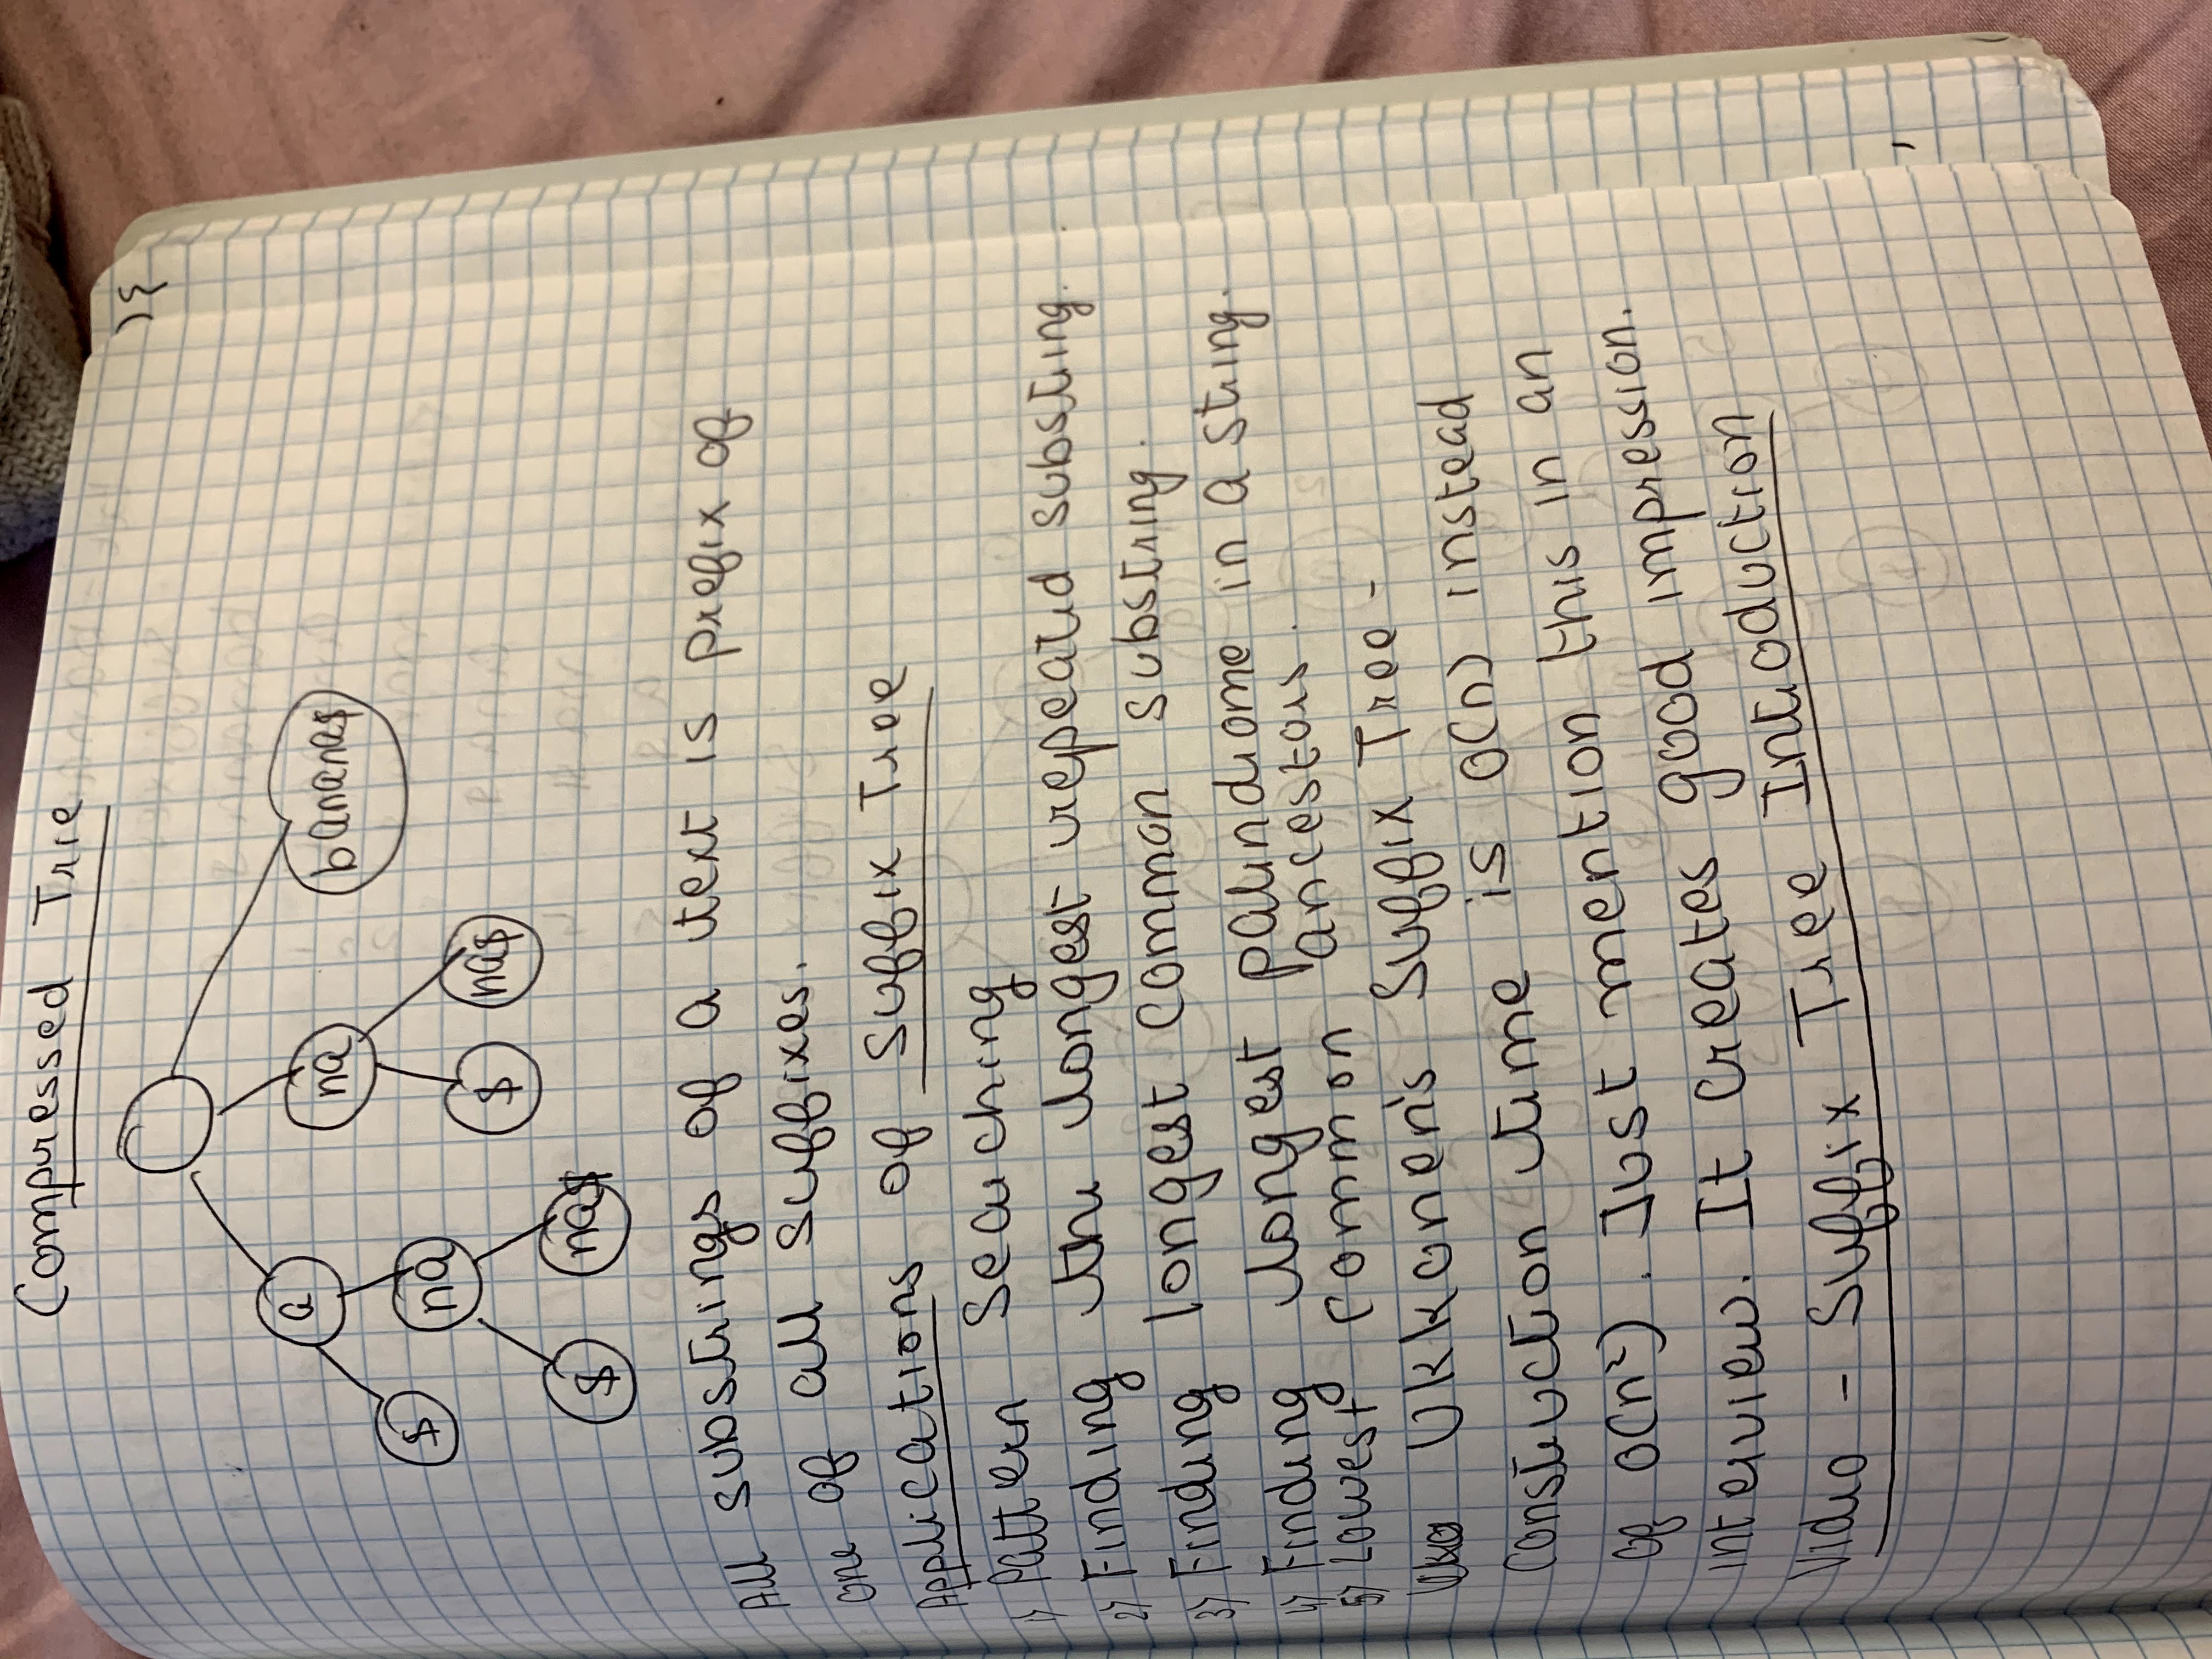 Compressed Trie
){
a
na
bananas$
$
na
$
na$
$
na$
All substrings of a text is prefix of
one of all suffixes.
Applications of Suffix Tree
1) Pattern Searching
2) Finding the longest repeated substring.
3) Finding longest common substring.
4) Finding longest palindrome in a string.
5) Lowest common ancestors.
Ukkonen's Suffix Tree -
Construction time is O(n) instead
of O(n²). Just mention this in an
interview. It creates good impression.
Video - Suffix Tree Introduction